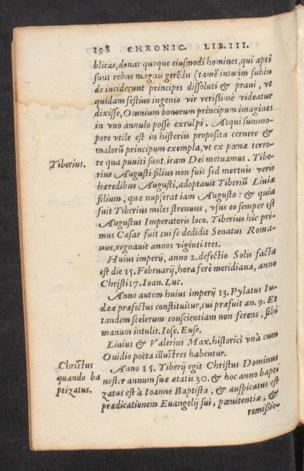 198 CHRONIC. LIB. III.
blicas, donat quoque eiusmodi homines, qui apti
sunt rebus magnis gerēdis (tamē interim subin
de inciderunt principes dissoluti & praui, vt
quidam festiuo ingenio vir verissimè videatur
dixisse, Omnium bonorum principum imagines
in vno annulo posse exculpi. Atqui summo-
pere vtile est in historijs proposita cernere &
malorū principum exempla, vt ex pœnæ terro-
re qua puniti sunt, iram Dei metuamus. Tibe-
Tiberius.
rius Augusti filius non fuit sed mortuis veris
hæredibus Augusti, adoptauit Tiberiū Liuiæ
filium, quæ nupserat iam Augusto: & quia
fuit Tiberius miles strenuus, vsus eo semper est
Augustus Imperatoris loco. Tiberius hic pri-
mus Cæsar fuit cui se dedidit Senatus Roma-
nus, regnauit annos viginti tres.
Huius imperij, anno 2. defectio Solis facta
est die 15. Februarij, hora ferè meridiana, anno
Christi 17. Ioan. Luc.
Anno autem huius imperij 13. Pylatus Iu-
dææ præfectus constituitur, cui præfuit an. 9. Et
tandem scelerum conscientiam non ferens, sibi
manum intulit. Iose. Euse.
Liuius & Valerius Max. historici vnà cum
Ouidio poëta illustres habentur.
Christus
quando ba
ptizatus.
Anno 15. Tiberij egit Christus Dominus
noster annum suæ ætatis 30. & hoc anno bapti
zatus est à Ioanne Baptista, & auspicatus est
prædicationem Euangelij sui, pœnitentiæ, &
remissio-